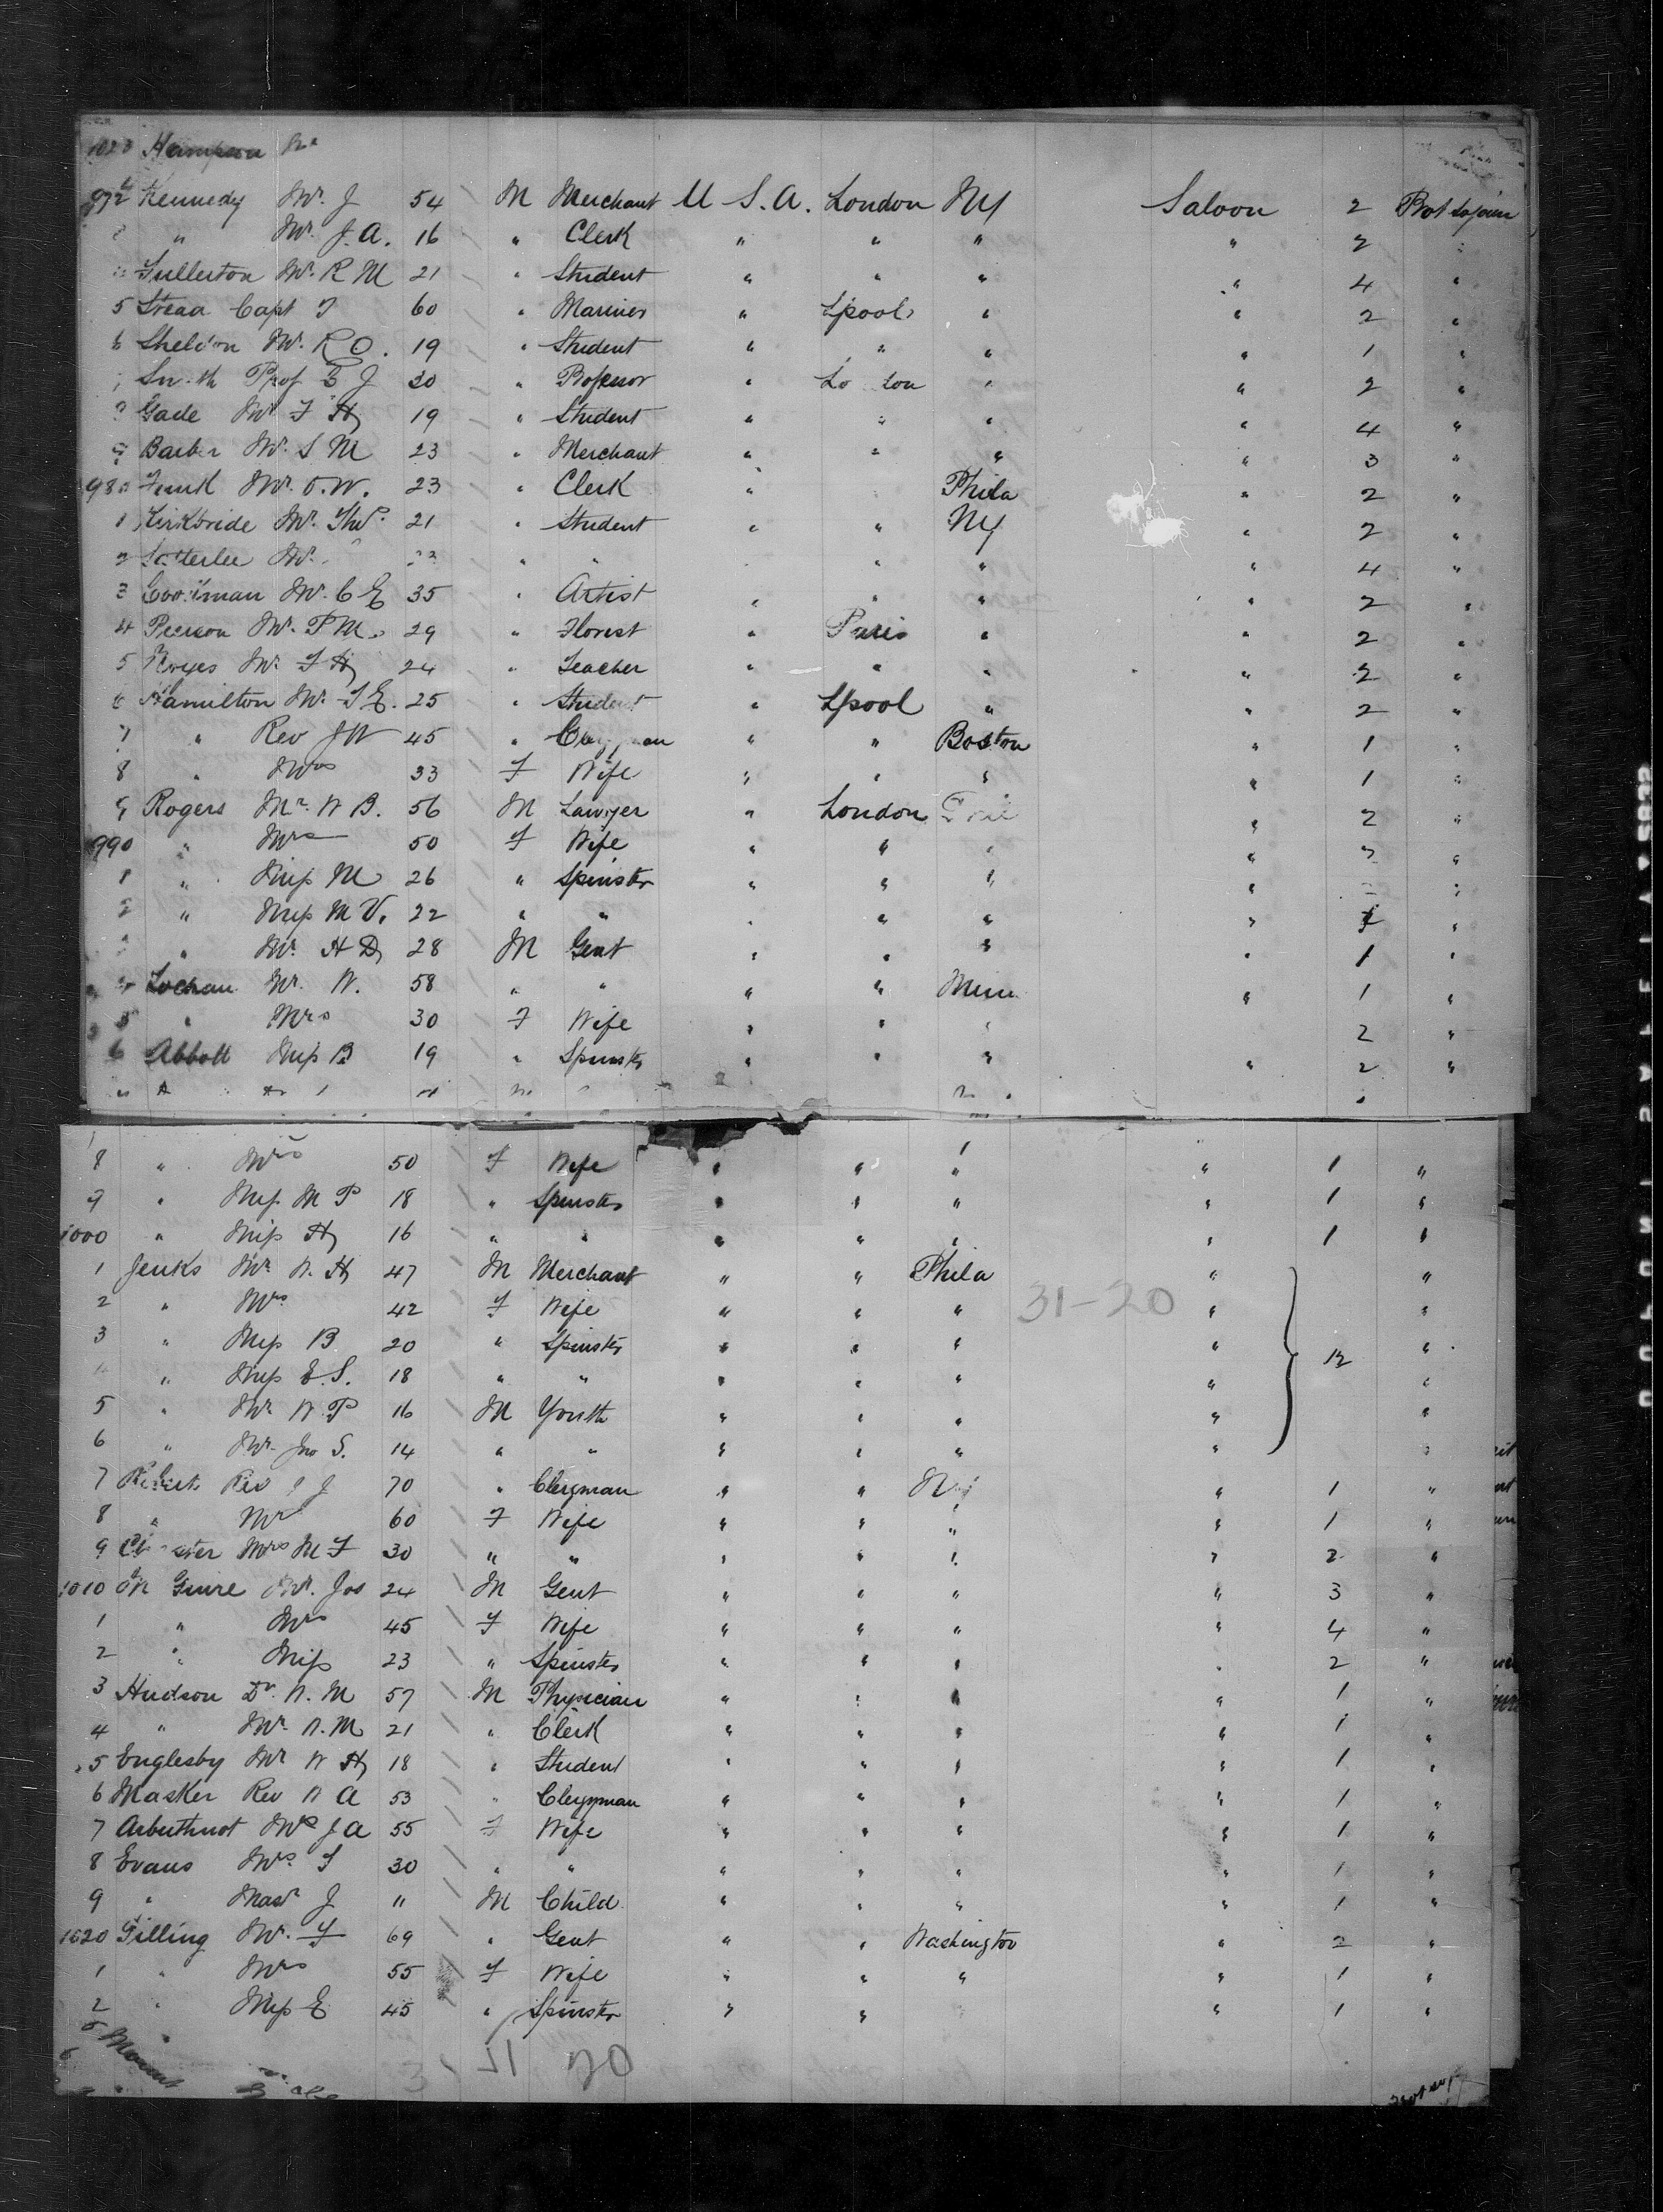 Hampson
972 Kennedy Mr. J 54 M Merchant U. S. A. London NY Saloon 2 Prot Sojourn
" Mr. J. A. 16 " Clerk " " " " 2
Fullerton Mr. R M 21 " Student " " " " 4 "
5 Capt 60 " Mariner " Lpool " " 2 "
6 Sheldon Mr. R O. 19 " Student " " " " 1 "
Prof J 30 " Professor " " " 2 "
Gade Mr F H 19 " Student " " " " 4 "
Barber Mr. S M 23 " Merchant " " " " 3 "
980 Mr. O. W. 23 " Clerk " Phila " 2 "
1 Kirkbride Mr. Thos. 21 " Student " " NY " 2 "
2 Satterlee Mr. " " " " " 4 "
3 Mr. C E 35 " Artist " " " " 2 "
4 Pierson Mr. P M. 29 " Florist " Paris " " 2 "
5 Noyes Mr. F H 24 " Teacher " " " " 2 "
6 Hamilton Mr. S E. 25 " Student " Lpool " " 2 "
7 " Rev J W 45 " " " Boston " 1 "
8 " Mrs 33 F Wife " " " " 1 "
9 Rogers Mr. W B. 56 M Lawyer " London " 2 "
990 " Mrs 50 F Wife " " " " "
1 " Miss M 26 " Spinster " " " " "
2 " Miss M V. 22 " " " " " "
" Mr. H D 28 M Gent " " " " 1 "
Lochan Mr. W. 58 " " " " Minn " 1 "
5 " Mrs 30 F Wife " " " 2 "
6 Abbott Miss B 19 " Spinster " " " " 2 "
8 " Mrs 50 F Wife " " " " 1 "
9 " Miss M P 18 " Spinster " " " " 1 "
1000 " Miss H 16 " " " " " " 1 "
1 Jenks Mr. W. H 47 M Merchant " " Phila " "
2 " Mrs 42 F Wife " " " 31-20 " "
3 " Miss B 20 " Spinster " " " " 12 "
4 " Miss E. S. 18 " " " " " " "
5 " Mr. W. P 16 M Youth " " " " "
6 " Mr. Jno S. 14 " " " " " " "
7 Rev J 70 " Clergman " " " 1 "
8 " Mrs 60 F Wife " " " " 1 "
9 Mrs M F 30 " " " " " " 2 "
1010 Mc Guire Mr. Jos 24 M Gent " " " " 3 "
1 " Mrs 45 F Wife " " " " 4 "
2 " Miss 23 " Spinster " " " " 2 "
3 Hudson Dr. W. M 57 M Physician " " " " 1 "
4 " Mr. W. M 21 " Clerk " " " " 1 "
5 Englesby Mr W H 18 " Student " " " " 1 "
6 Masker Rev W A 53 " Clergyman " " " " 1 "
7 Arbuthnot Mrs J A 55 F Wife " " " " 1 "
8 Evans Mrs. S 30 " " " " " " 1 "
9 " Mast J 11 M Child " " " " 1 "
1020 Gilling Mr. F 69 " Gent " " Washington " 2 "
1 " Mrs 55 F Wife " " " " 1 "
2 " Miss E 45 " Spinster " " " 1 "